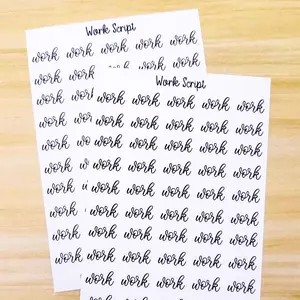 Work Script
work work work work work
work work work work work
work
work
work
work
work
work
work
work
Work Script
work work work work work work
work work work work work work
work work work work work work
work work work work work work
work work work work work work
work work work work work work
work work work work work work
work work work work work work
work work work work work work